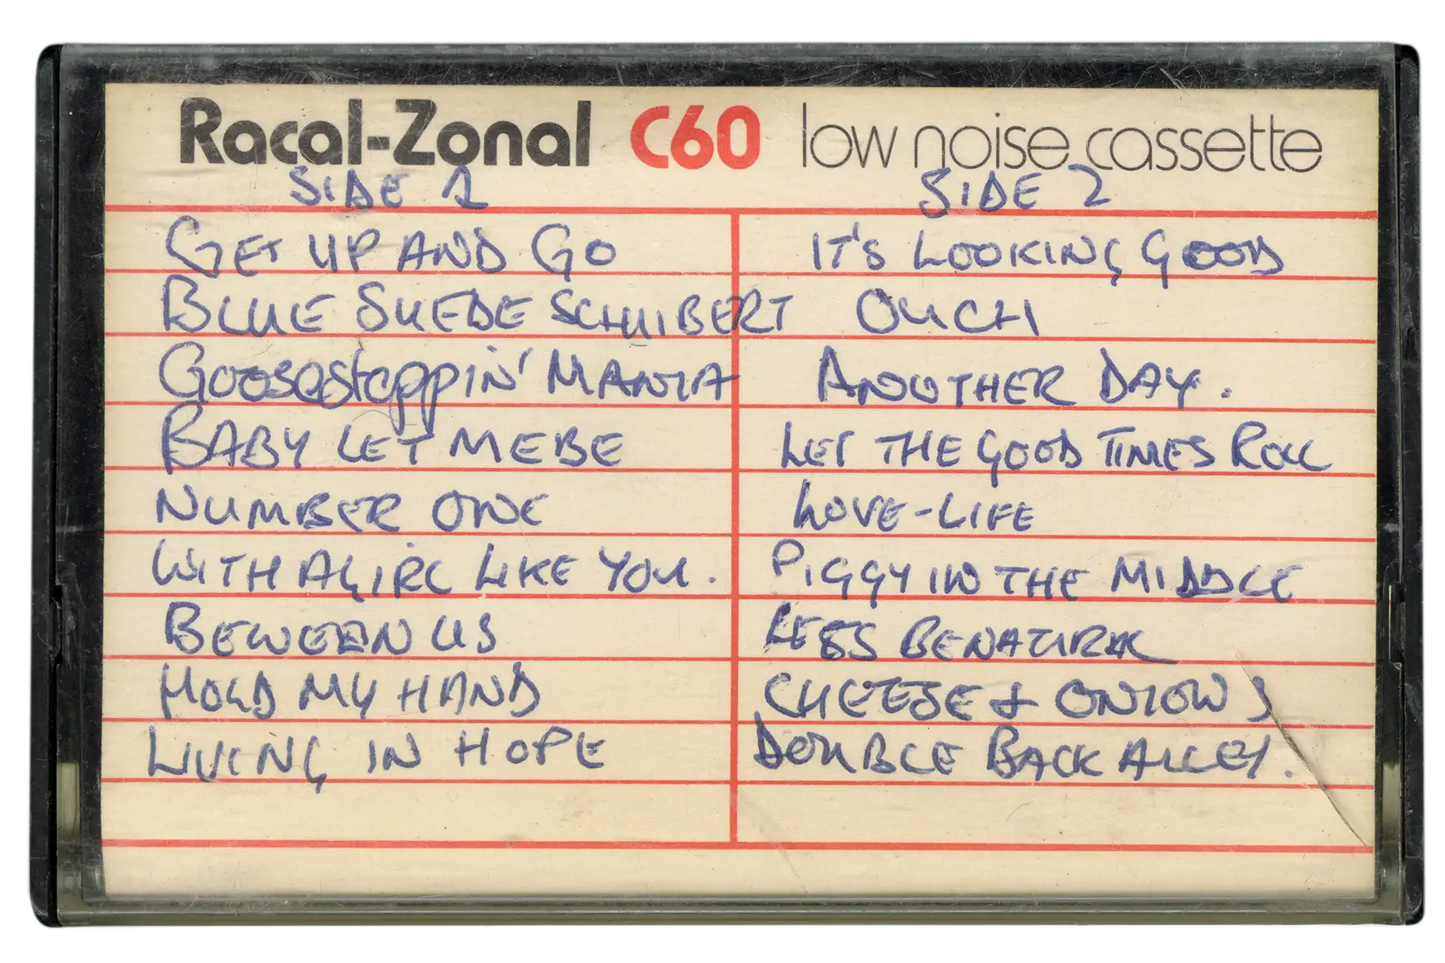 Racal-Zonal C60 low noise cassette
SIDE 1
GET UP AND GO
BLUE SUEDE SCHUIBERT
Goosesteppin' MANIA
BABY LET ME BE
NUMBER ONE
WITH A GIRL LIKE YOU.
BEWEEN US
HOLD MY HAND
LIVING IN HOPE
SIDE 2
IT'S LOOKING GOOD
OUCH
ANOTHER DAY.
LET THE GOOD TIMES ROLL
LOVE-LIFE
PIGGY IN THE MIDDLE
LETS BENATURAL
CHEESE & ONIONS
DOUBLE BACK ALLEY.